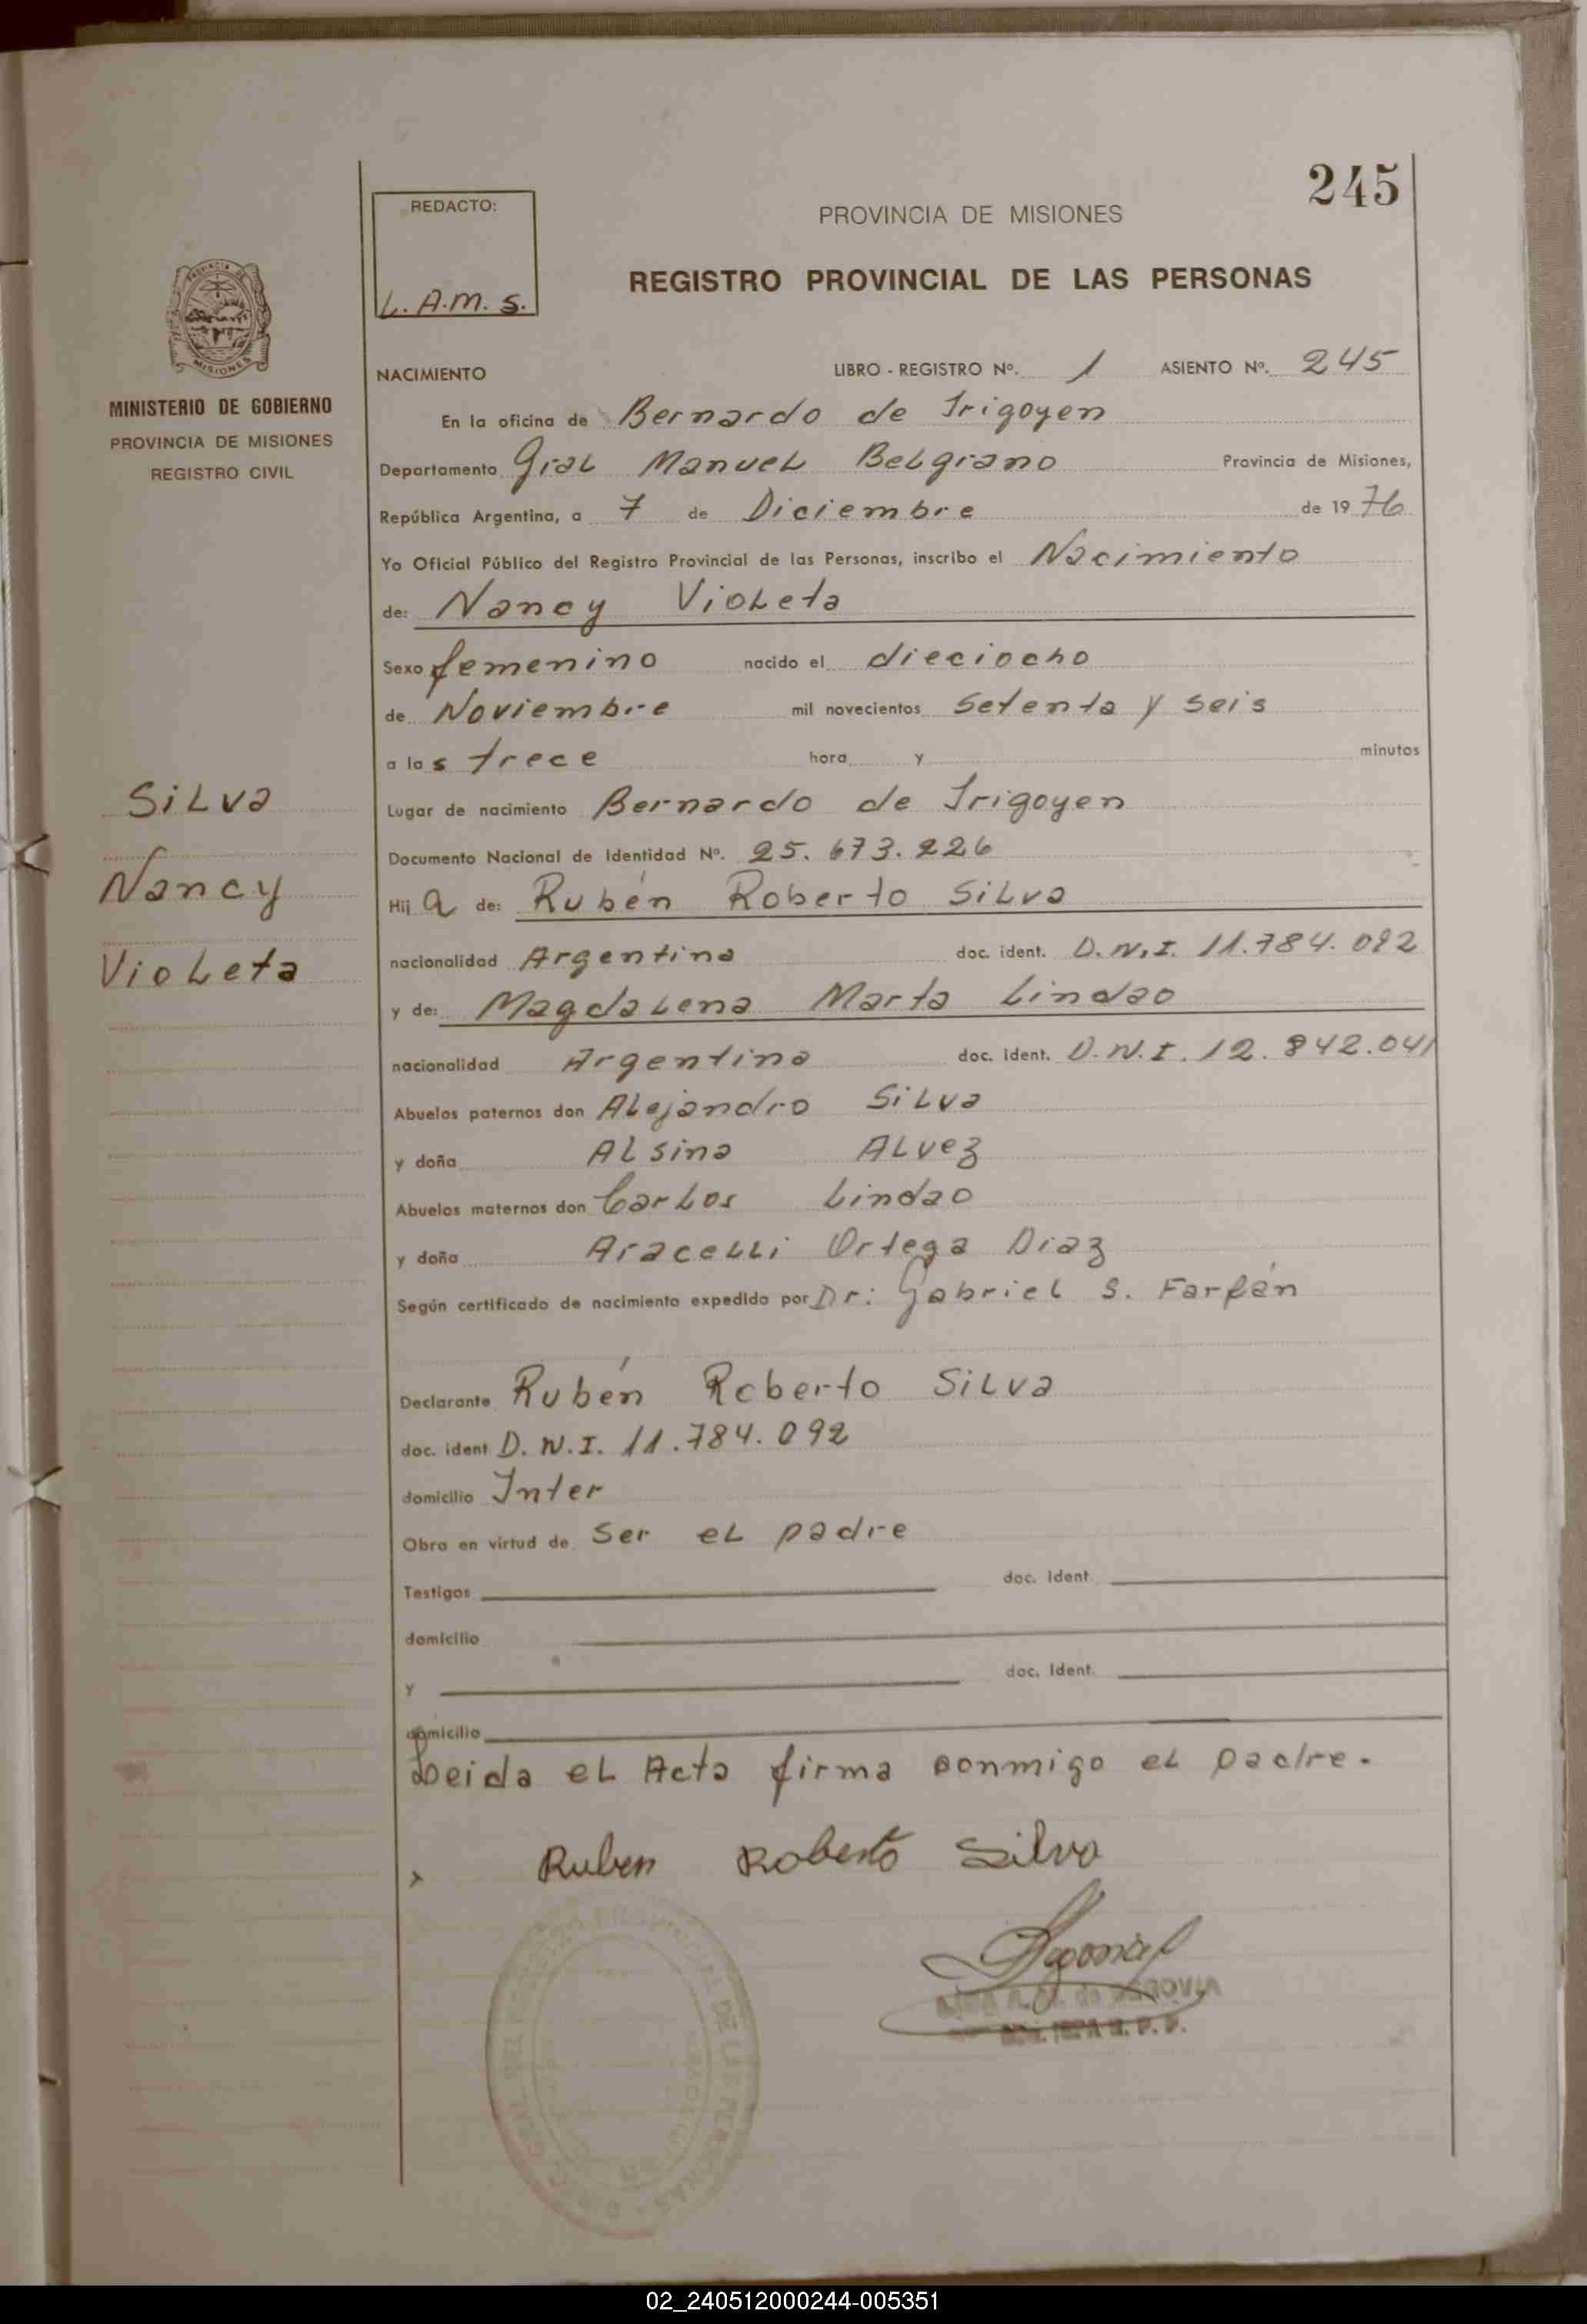 245
REDACTO:
L. A. M. S.
PROVINCIA DE MISIONES
REGISTRO PROVINCIAL DE LAS PERSONAS
MINISTERIO DE GOBIERNO
PROVINCIA DE MISIONES
REGISTRO CIVIL
Silva
Nancy
Violeta
NACIMIENTO LIBRO - REGISTRO Nº. 1 ASIENTO Nº. 245
En la oficina de Bernardo de Irigoyen
Departamento Gral Manuel Belgrano Provincia de Misiones,
República Argentina, a 7 de Diciembre de 1976
Yo Oficial Público del Registro Provincial de las Personas, inscribo el Nacimiento
de: Nancy Violeta
Sexo femenino nacido el dieciocho
de Noviembre mil novecientos setenta y seis
a las trece hora y minutos
Lugar de nacimiento Bernardo de Irigoyen
Documento Nacional de Identidad Nº. 25.673.226
Hija de: Rubén Roberto Silva
nacionalidad Argentina doc. ident. D.N.I. 11.784.092
y de: Magdalena Marta Lindao
nacionalidad Argentina doc. ident. D.N.I. 12.842.041
Abuelos paternos don Alejandro Silva
y doña Alsina Alvez
Abuelos maternos don Carlos Lindao
y doña Aracelli Ortega Diaz
Según certificado de nacimiento expedido por Dr: Gabriel S. Farfán
Declarante Rubén Roberto Silva
doc. ident. D.N.I. 11.784.092
domicilio Inter
Obra en virtud de ser el padre
Testigos doc. Ident.
domicilio
y doc. Ident.
domicilio
Leida el Acta firma conmigo el padre.
Ruben Roberto Silva
de SEGOVIA
02_240512000244-005351